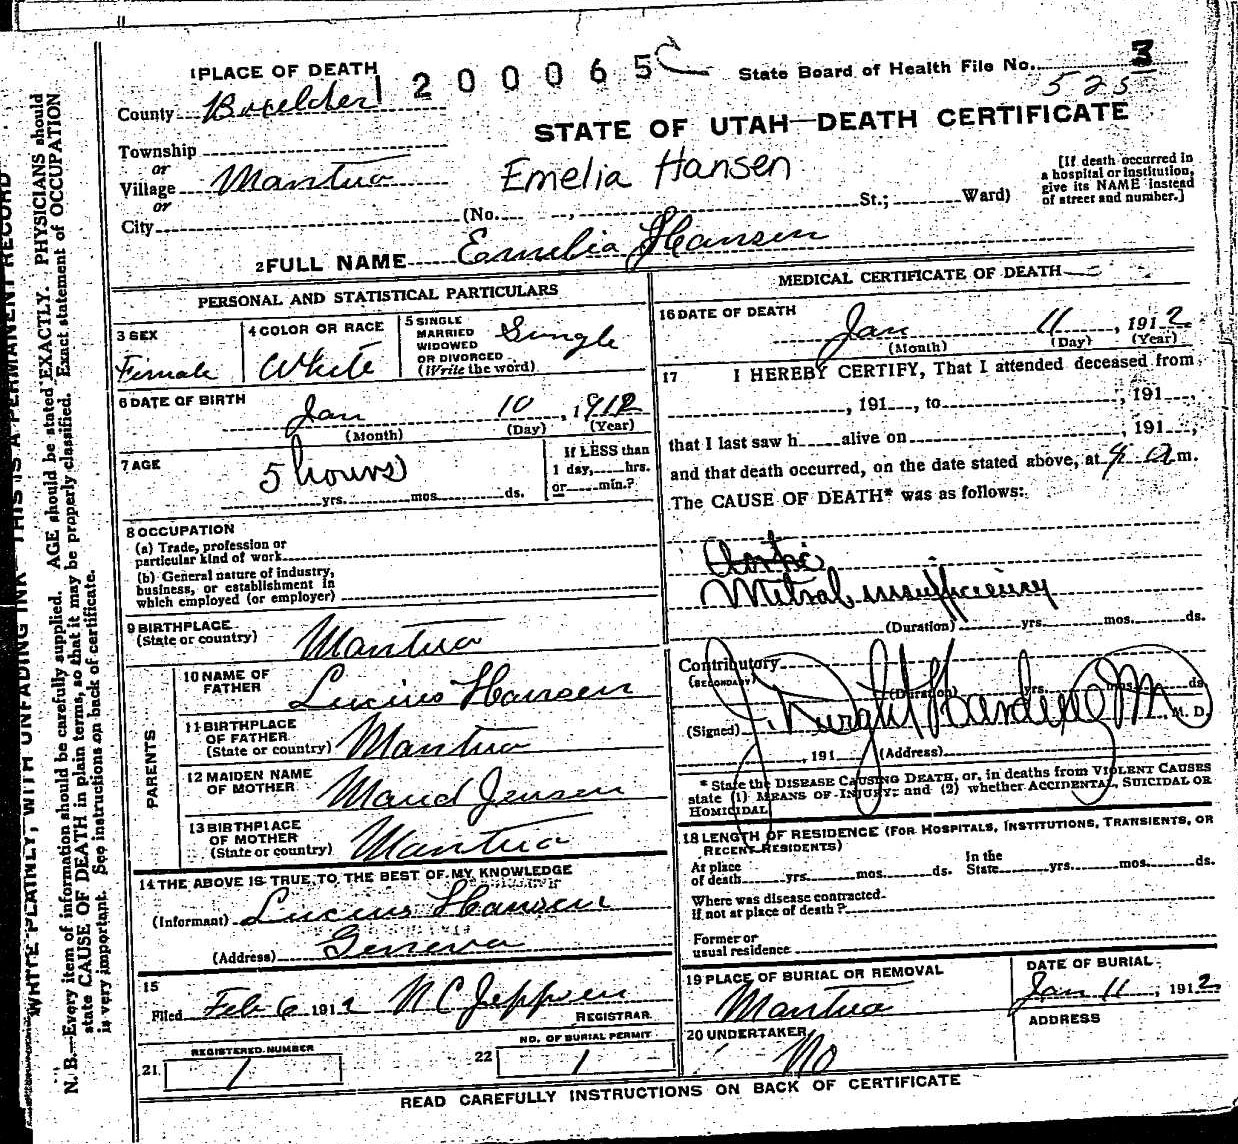 1 PLACE OF DEATH
1200065
State Board of Health File No. 3
525
County Boxelder
STATE OF UTAH—DEATH CERTIFICATE
Township
or
Village Mantua
or
City
Emelia Hansen
[If death occurred in
a hospital or institution,
give its NAME instead
of street and number.]
(No. , St.; Ward)
2 FULL NAME Emelia Hansen
PERSONAL AND STATISTICAL PARTICULARS
3 SEX
Female
4 COLOR OR RACE
White
5 SINGLE
MARRIED
WIDOWED
OR DIVORCED
(Write the word)
Single
6 DATE OF BIRTH
Jan 10, 1912
(Month) (Day) (Year)
7 AGE
5 hours
yrs. mos. ds.
If LESS than
1 day, hrs.
or min.?
8 OCCUPATION
(a) Trade, profession or
particular kind of work
(b) General nature of industry,
business, or establishment in
which employed (or employer)
9 BIRTHPLACE
(State or country)
Mantua
PARENTS
10 NAME OF
FATHER
Lucius Hansen
11 BIRTHPLACE
OF FATHER
(State or country)
Mantua
12 MAIDEN NAME
OF MOTHER
Maud Jensen
13 BIRTHPLACE
OF MOTHER
(State or country)
Mantua
14 THE ABOVE IS TRUE TO THE BEST OF MY KNOWLEDGE
(Informant) Lucius Hansen
(Address) Geneva
15
Filed Feb 6 1912 N C Jeppsen
REGISTRAR
21 REGISTERED NUMBER
1
22 NO. OF BURIAL PERMIT
1
MEDICAL CERTIFICATE OF DEATH
16 DATE OF DEATH
Jan 11, 1912
(Month) (Day) (Year)
17 I HEREBY CERTIFY, That I attended deceased from
, 191 , to , 191 ,
that I last saw h alive on , 191 ,
and that death occurred, on the date stated above, at 4 a m.
The CAUSE OF DEATH* was as follows:
Mitral insufficiency
(Duration) yrs. mos. ds.
Contributory
(SECONDARY)
(Duration) yrs. mos. ds.
(Signed) J. Dwight Harding M. D.
, 191 (Address)
* State the DISEASE CAUSING DEATH, or, in deaths from VIOLENT CAUSES
state (1) MEANS OF INJURY; and (2) whether ACCIDENTAL, SUICIDAL OR
HOMICIDAL
18 LENGTH OF RESIDENCE (FOR HOSPITALS, INSTITUTIONS, TRANSIENTS, OR
RECENT RESIDENTS)
At place
of death yrs. mos. ds.
In the
State yrs. mos. ds.
Where was disease contracted
if not at place of death?
Former or
usual residence
19 PLACE OF BURIAL OR REMOVAL
Mantua
DATE OF BURIAL
Jan 11, 1912
20 UNDERTAKER
No
ADDRESS
READ CAREFULLY INSTRUCTIONS ON BACK OF CERTIFICATE
WRITE PLAINLY, WITH UNFADING INK—THIS IS A PERMANENT RECORD
N. B.—Every item of information should be carefully supplied. AGE should be stated EXACTLY. PHYSICIANS should
state CAUSE OF DEATH in plain terms, so that it may be properly classified. Exact statement of OCCUPATION
is very important. See instructions on back of certificate.